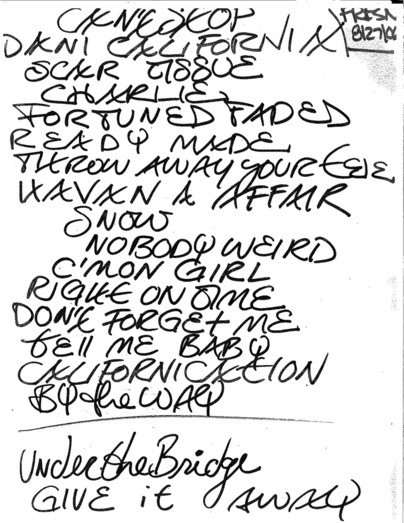 CAN'T STOP
DANI CALIFORNIA
SCAR TISSUE
CHARLIE
FORTUNED FADED
READY MADE
THROW AWAY YOUR TELE
HAVAN A AFFAIR
SNOW
NOBODY WEIRD
C'MON GIRL
RIGHT ON TIME
DON'T FORGET ME
tell ME BABY
CALIFORNICATION
BY the WAY
Under the Bridge
GIVE it AWAY